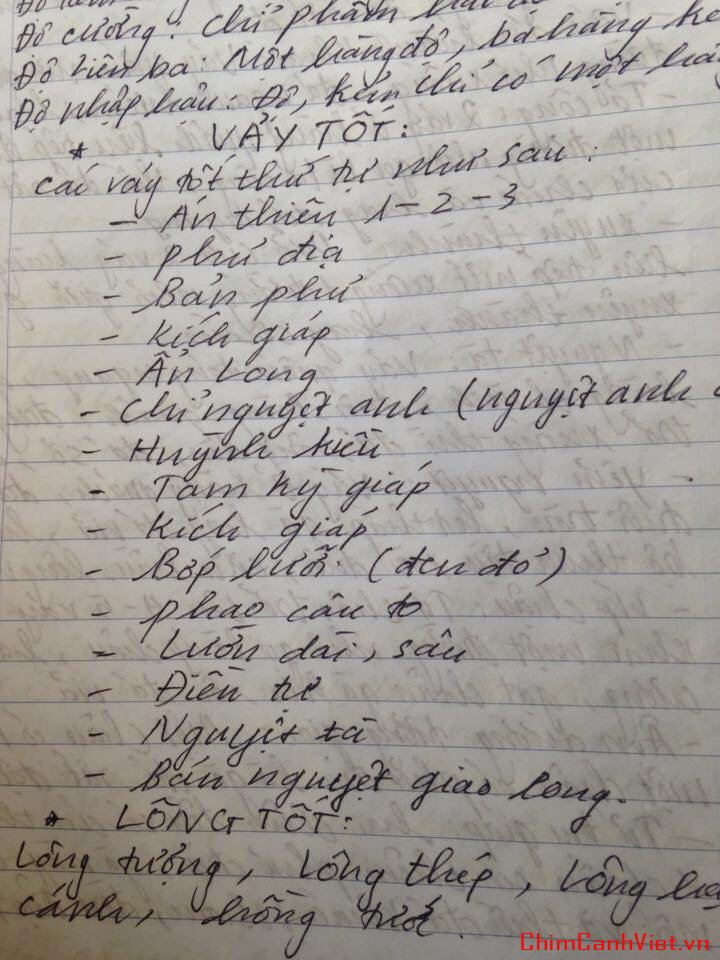 Độ cường: Chỉ phẩm
Độ liên ba: Một hàng độ, ba hàng kẽ
Độ nhập hậu: Độ, kẽm chỉ có một
* VẢY TỐT:
cái váy tốt thứ tự như sau:
- Án thiên 1-2-3
- phủ địa
- Bản phủ
- Kích giáp
- Ẩn Long
- Chỉ nguyệt anh (nguyệt anh
- Huỳnh kiều
- Tam kỳ giáp
- Kích giáp
- Bớp lưỡi (đen đỏ)
- phao câu to
- Lườn dài, sâu
- Điền tự
- Nguyệt tà
- Bán nguyệt giao long.
* LÔNG TỐT:
Lông tượng, Lông thép, Lông
cánh,
ChimCanhViet.vn